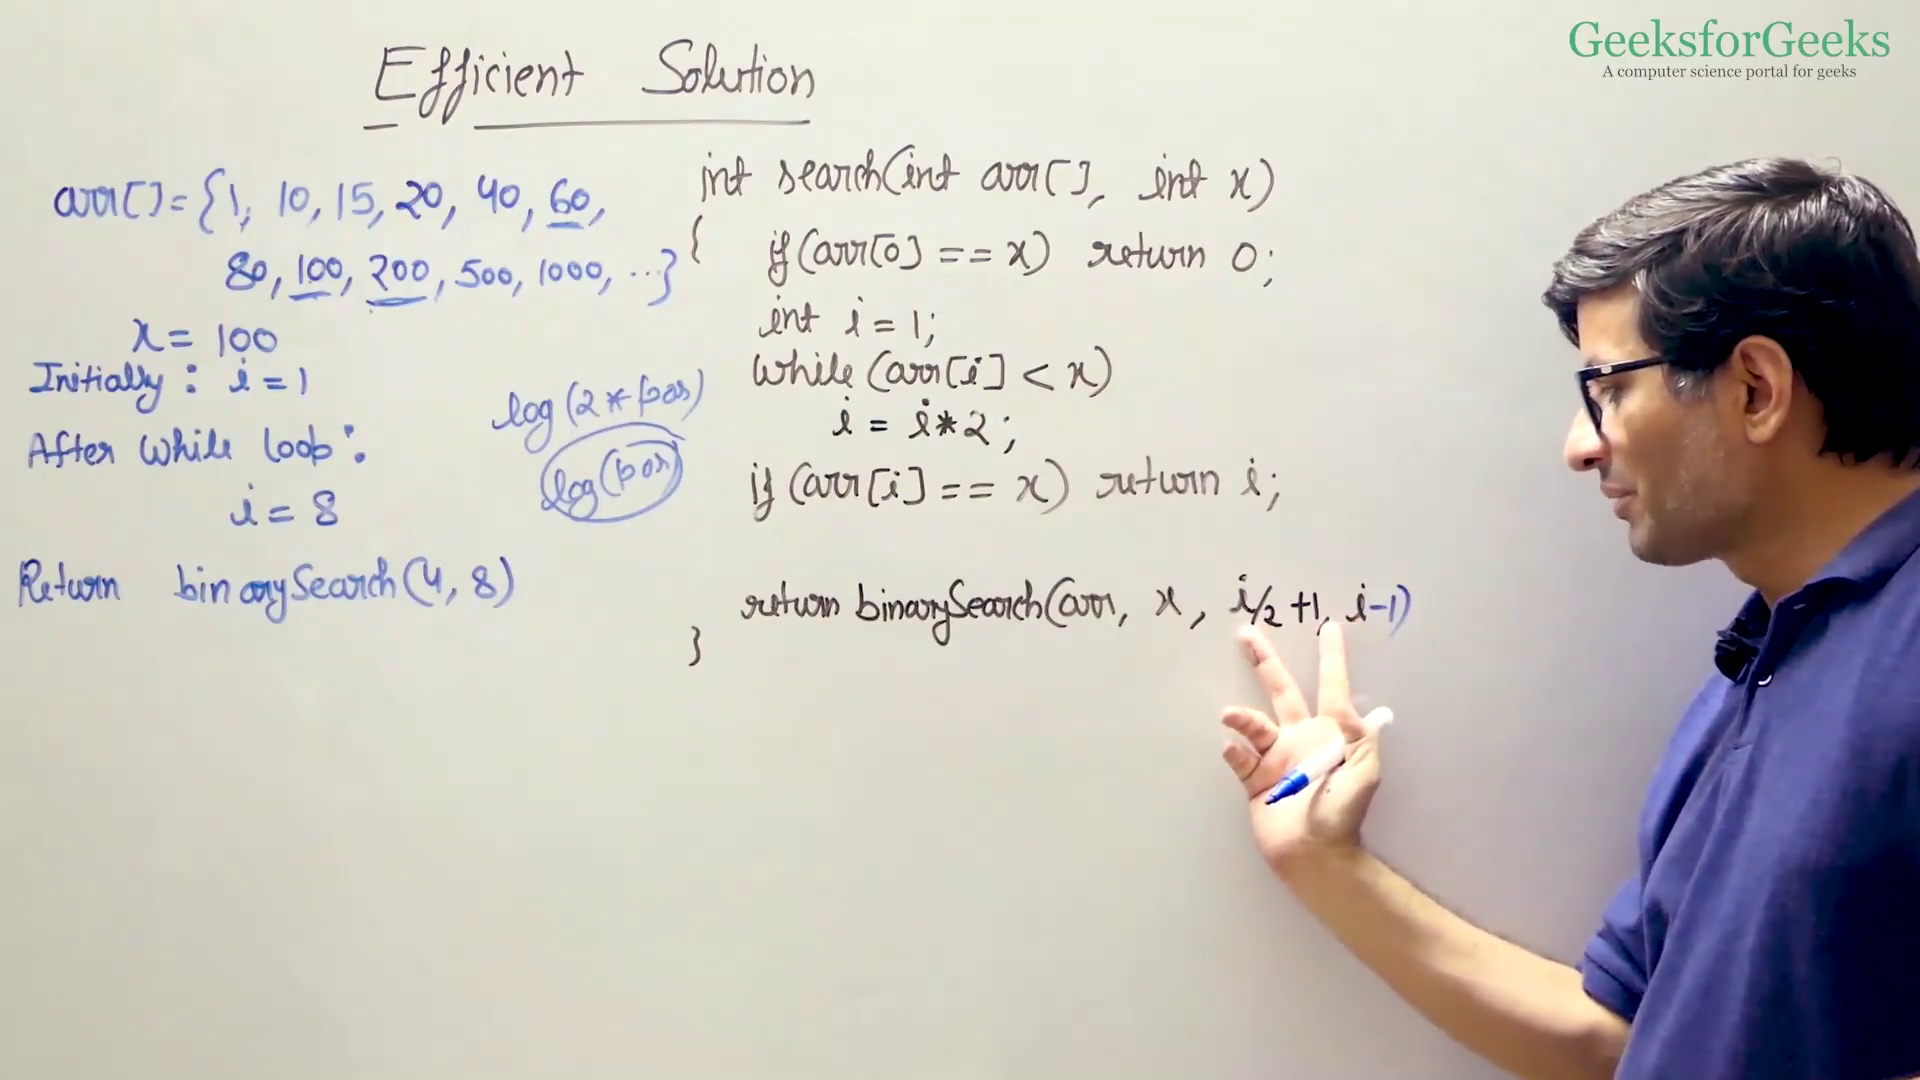 GeeksforGeeks
A computer science portal for geeks
Efficient Solution
arr[] = {1, 10, 15, 20, 40, 60,
80, 100, 200, 500, 1000, ...}
x = 100
Initially : i = 1
After While loop :
i = 8
Return binarySearch(4, 8)
log(2 * pos)
log(pos)
int search(int arr[], int x)
{ if (arr[0] == x) return 0;
int i = 1;
While (arr[i] < x)
i = i*2;
if (arr[i] == x) return i;
return binarySearch(arr, x, i/2 +1, i-1)
}